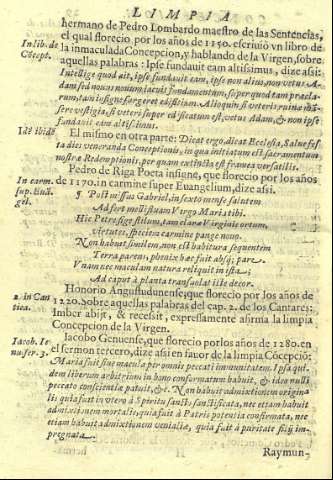 LIMPIA
hermano de Pedro Lombardo maestro de las Sentencias,
el qual florecio por los años de 1150. escriuiò vn libro de
In lib. de la inmaculada Concepcion, y hablando de la Virgen, sobre
Cõcept. aquellas palabras: Ipse fundauit eam altissimus, dize assi:
Intellige quod ait, ipse fundauit eam, ipse non alius, non vetus A-
dam sed nouus nouum iacuit fundamentum, super quod tam præcla-
rum, tam insigne surgeret ædificium. Alioquin si veteris ruinæ
sisteret vestigia, si veteri super ædificatum est, vetus Adam, & non ipse
fundauit eam altissimus.
Idẽ ibidẽ. El mismo en otra parte: Dicat ergo, dicat Ecclesia, Salue fes-
ta dies veneranda Conceptionis, in qua initiatum est sacramentum
nostræ Redemptionis, per quam extincta est fraudis versatilis.
Pedro de Riga Poeta insigne, que florecio por los años
In carm. de 1170. in carmine super Euangelium, dize assi.
sup. Euã- I. Post missus Gabriel, in sexto mense salutem
gel. Adfore mellifluam Virgo Maria tibi.
Hic Petre sige stilum, tam clara Virginis ortum,
virtutes, speciem carmine pange nouo.
Non habuit similem, non est habitura sequentem
Terra parem, phœnix hæc fuit absq; pare.
Vnam nec maculam natura reliquit in ista;
Ad caput à planta transuolat ille decor.
Honorio Angustudunense, que florecio por los años de
2. in Can 1220. sobre aquellas palabras del cap. 2. de los Cantares:
tica. Imber abijt, & recessit, expressamente afirma la limpia
Concepcion de la Virgen.
Iacob. Ie Iacobo Genuense, que florecio por los años de 1280. en
nuser. 3. el sermon tercero, dize assi en fauor de la limpia Cõcepciõ:
Maria fuit sine macula per omnem peccati immunitatem. Ipsa qui-
dem liberum arbitrium in bono conformatum habuit, & ideo nulli
peccato conscientia patuit, &c. Non habuit admixtionem origina-
lis quia fuit in vtero à Spiritu sancto sanctificata, nec etiam habuit
admixtionem mortalis, quia fuit à Patris potentia confirmata, nec
etiam habuit admixtionem venialis, quia fuit à puritate filij im-
pregnata.
H Raymun-